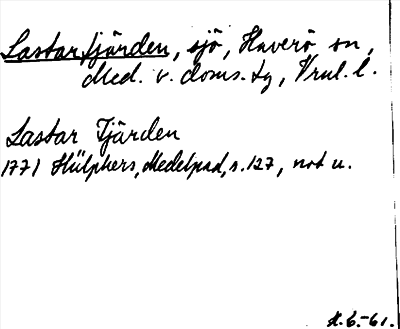 Lastartjärden, sjö, Haverö sn,
Med. v. doms. tg, Vnl. l.
Lastar Tjärden
1771 Hülphers, Medelpad, s. 127, not u.
H. G. -61.